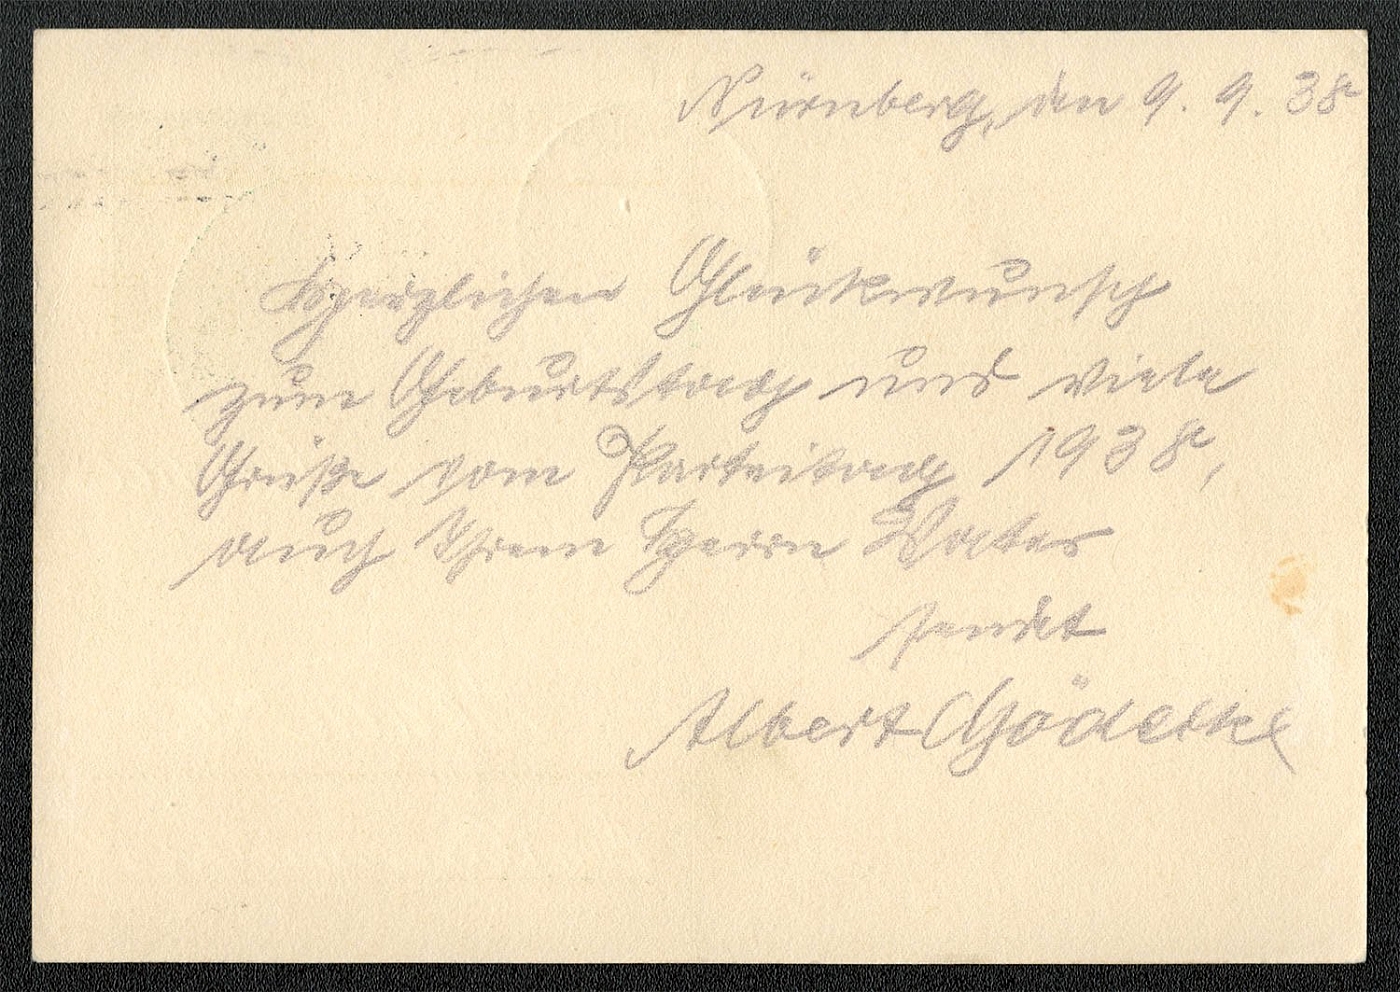 Nürnberg, den 9. 9. 38
Herzlichen Glückwunsch
zum Geburtstag und viele
Grüße vom Parteitag 1938,
auch Ihrem Herrn Vater
sendet
Albert Gödecke